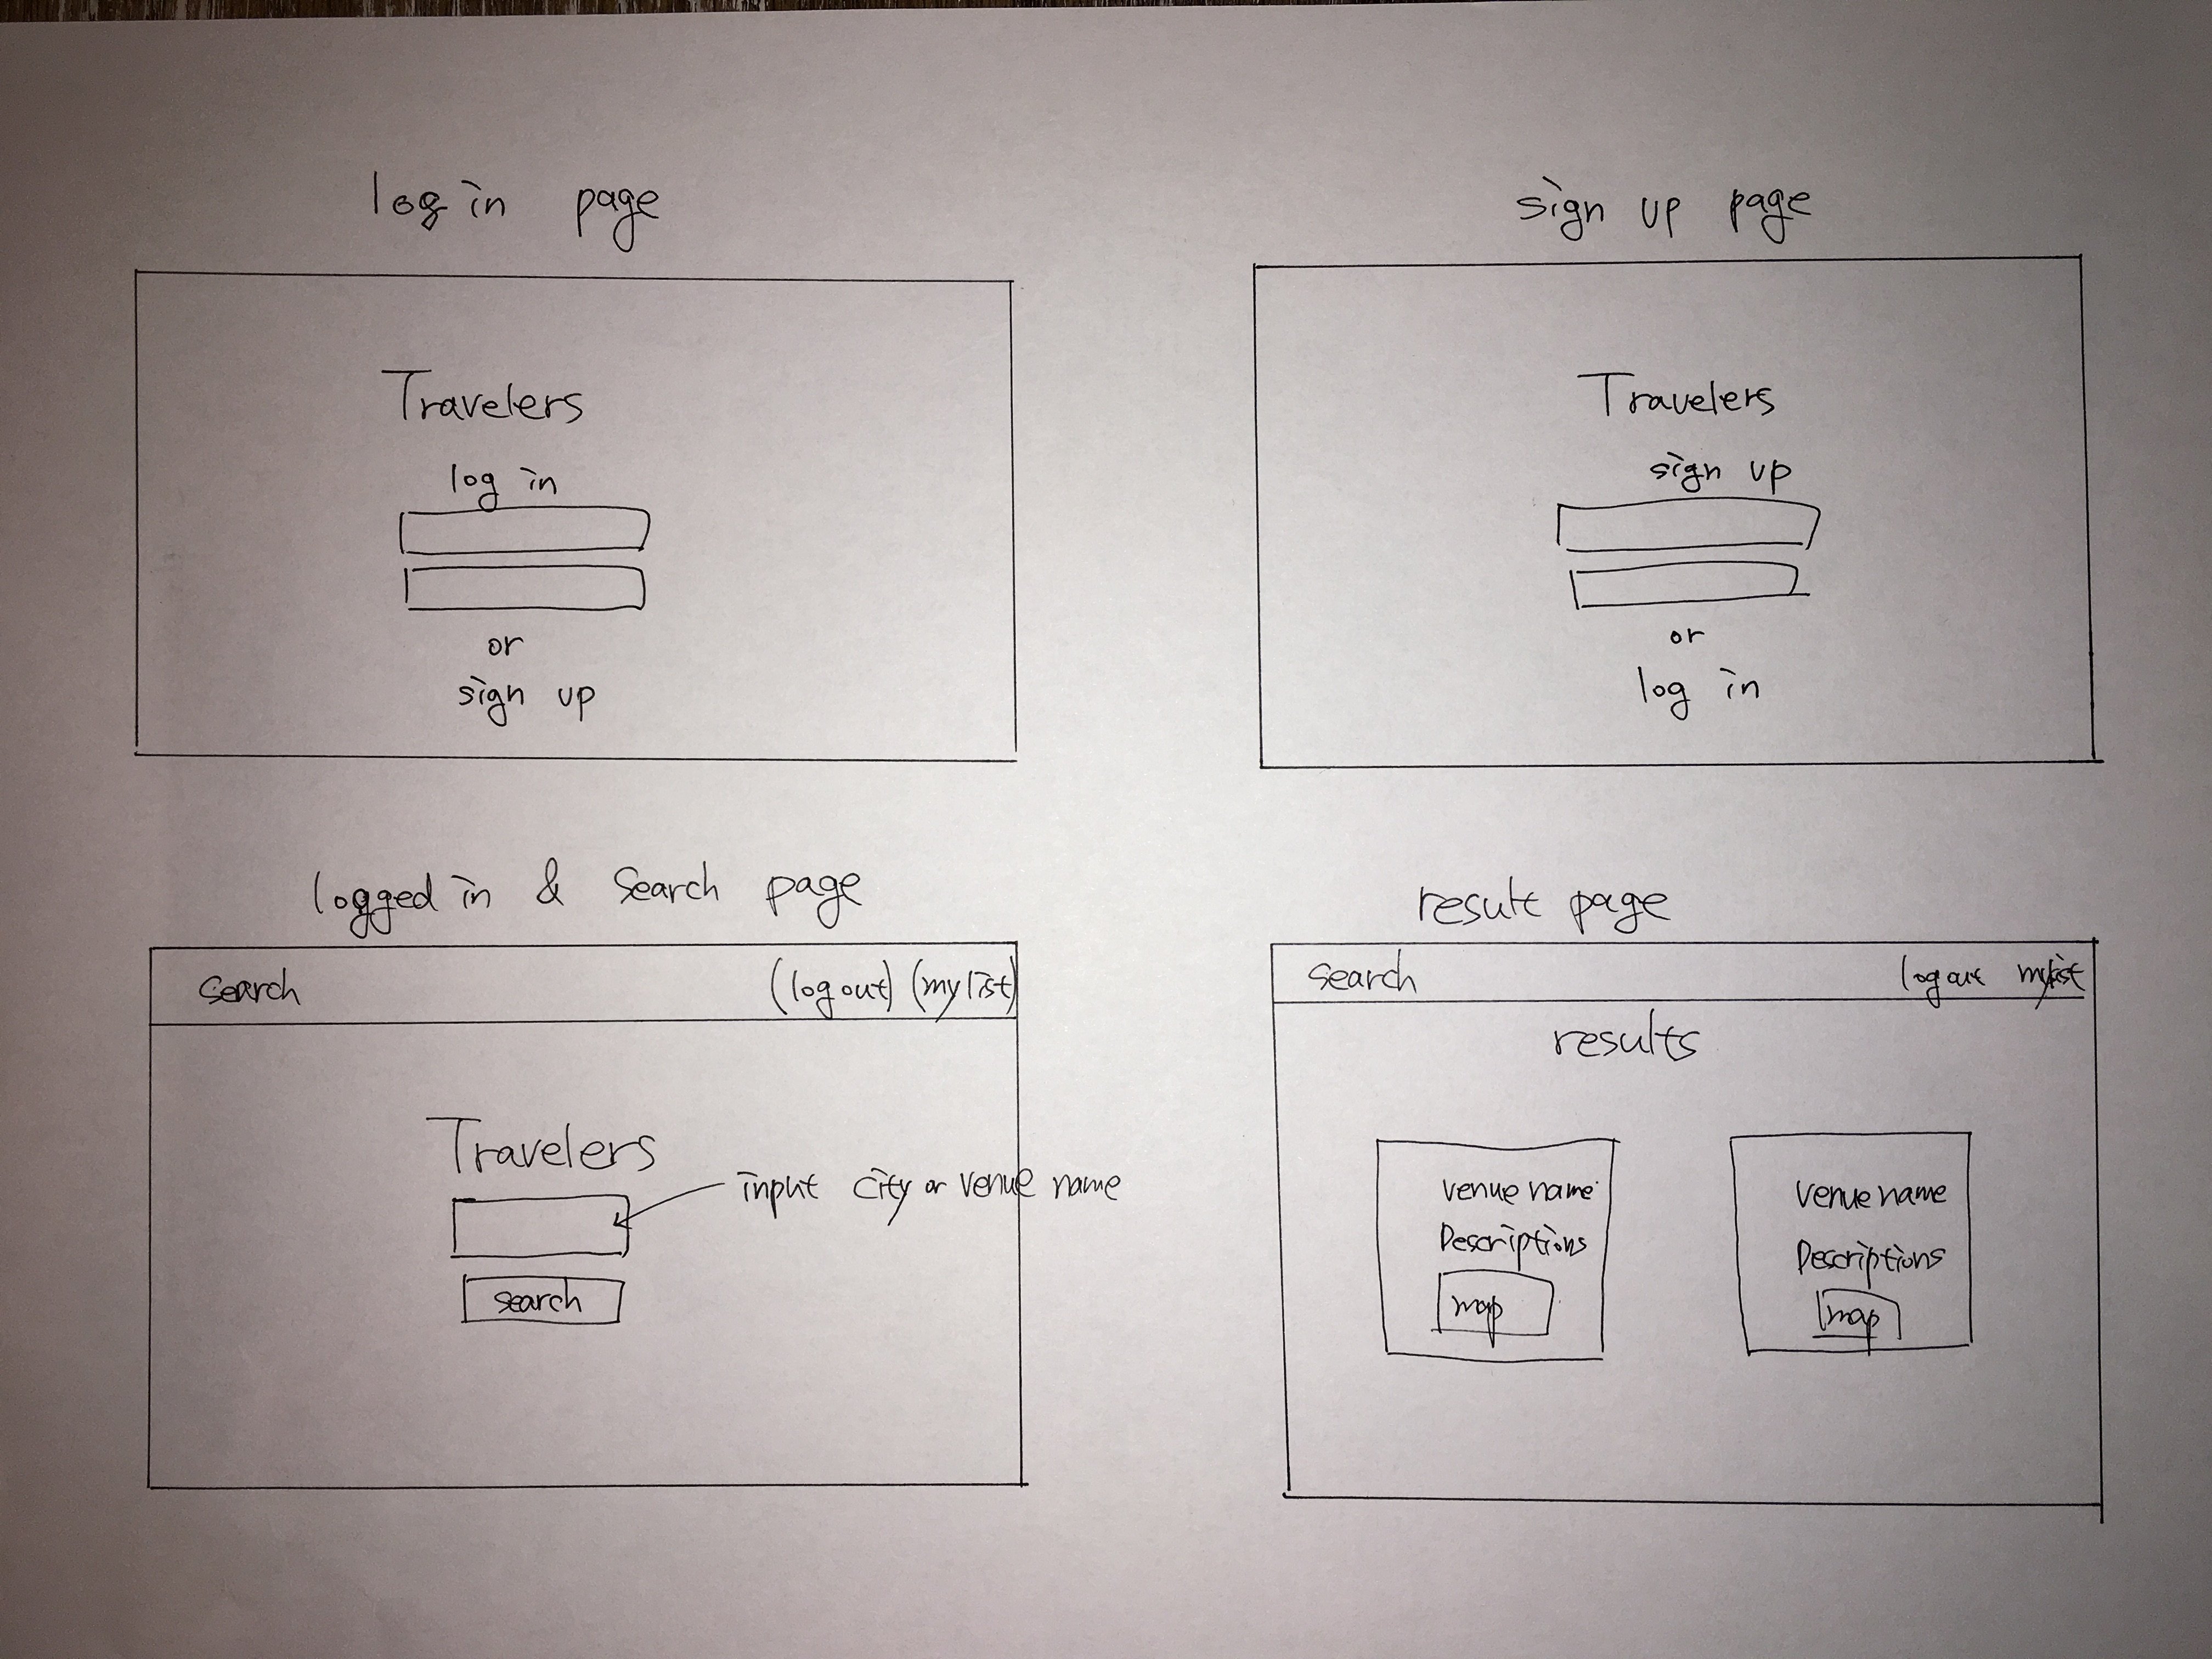 log in page
Travelers
log in
or
sign up
sign up page
Travelers
sign up
or
log in
logged in & search page
search (log out) (my list)
Travelers
input city or venue name
search
result page
search log out mylist
results
venue name
Descriptions
map
venue name
Descriptions
map